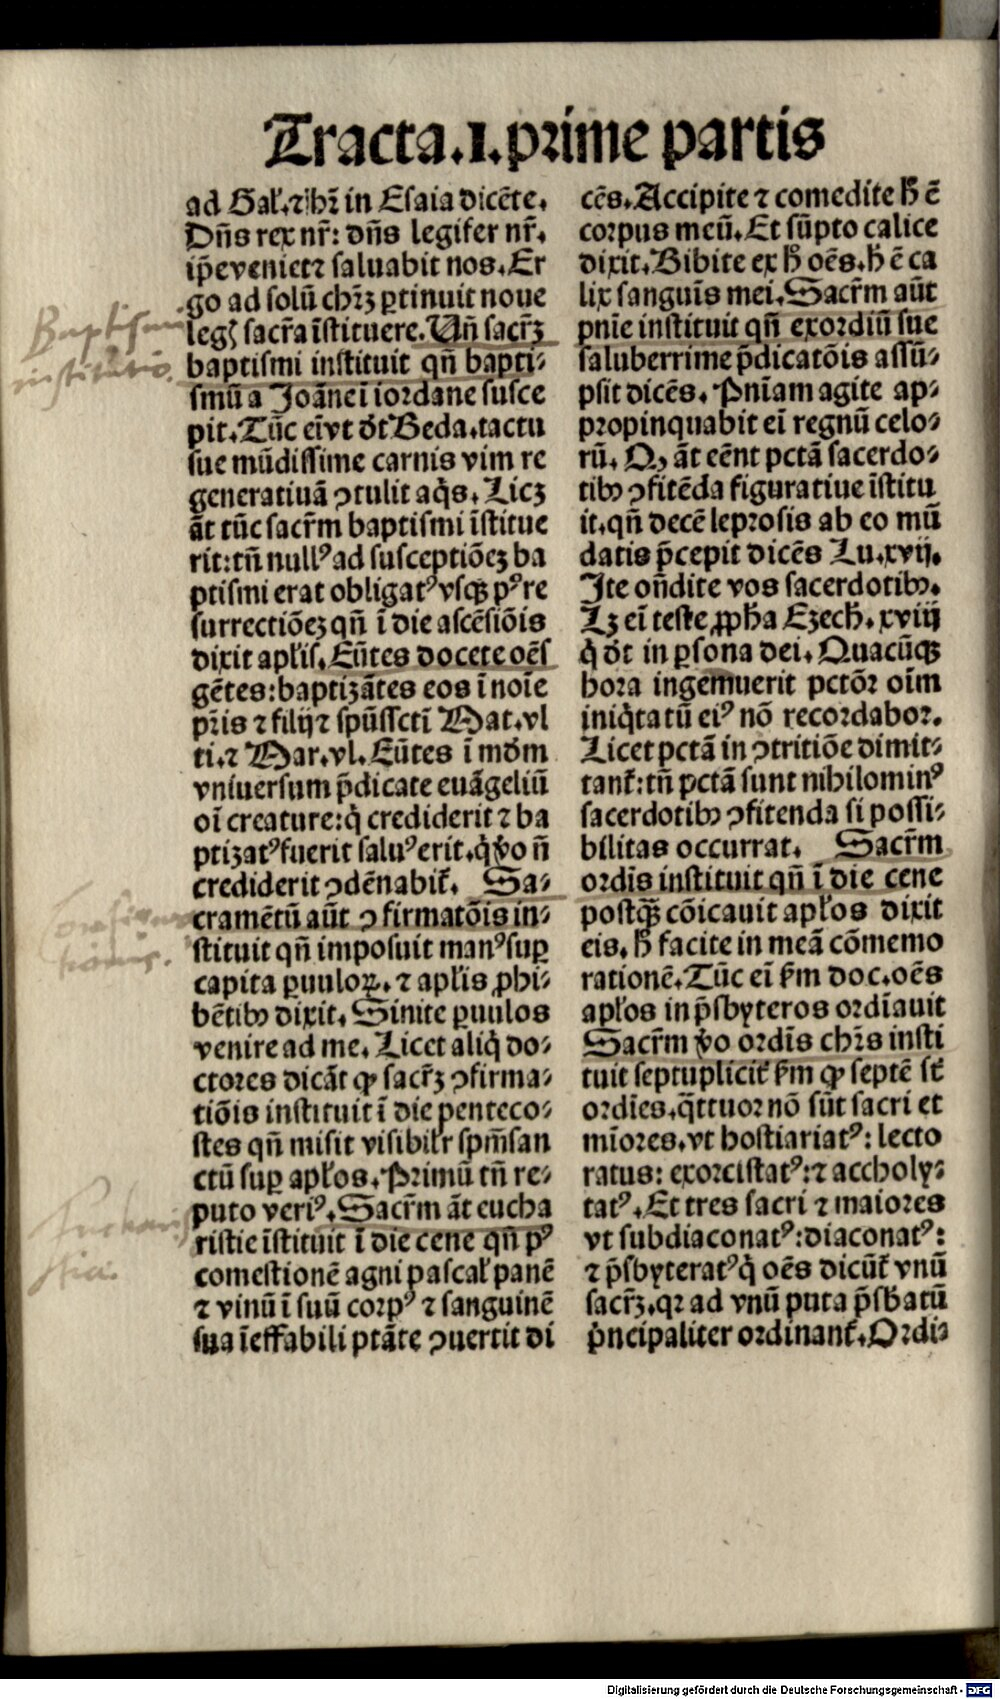 Tracta.I.prime partis
ad Gal̄.⁊ hr̄ in Esaia dicēte.
Dn̄s rex nr̄: dn̄s legifer nr̄.
ip̄e veniet⁊ saluabit nos. Er
go ad solū chr̄ꝫ ꝑtinuit noue
leg sacr̄a īstituere. Vn̄ sacr̄ꝫ
baptismi instituit qn̄ bapti⸗
smū a Joāne ī iordane susce
pit. Tūc eī vt dt̄ Beda. tactu
sue mūdissime carnis vim re
generatiuā ↄtulit aq̇s. Licꝫ
āt tūc sacr̄m baptismi īstitue
rit: tn̄ nullꝰ ad susceptiōeꝫ ba
ptismi erat obligatꝰ vsqꝫ pꝰ re
surrectiōeꝫ qn̄ ī die ascēsiōis
dixit apl̄is. Eūtes docete oēs
gētes: baptizātes eos ī noīe
pr̄is ⁊ filij ⁊ spūssctī Mat. vl
ti. ⁊ Mar. vl. Eūtes ī mōm
vniuersum p̄dicate euāgeliū
oī creature: q̇ crediderit ⁊ ba
ptizatꝰ fuerit saluꝰ erit. q̇ v̇o n̄
crediderit ↄdēnabit̄. Sa⸗
cramētū aūt ↄfirmatōis in⸗
stituit qn̄ imposuit manꝰ suꝑ
capita ꝑuuloꝝ. ⁊ apl̄is ꝓhi⸗
bētibꝰ dixit. Sinite ꝑuulos
venire ad me. Licet aliq̇ do⸗
ctores dicāt ꝙ sacr̄ꝫ ↄfirma⸗
tiōis instituit ī die penteco⸗
stes qn̄ misit visibilr̄ spm̄san
ctū suꝑ apl̄os. Primū tn̄ re⸗
puto veriꝰ. Sacr̄m āt eucha
ristie īstituit ī die cene qn̄ pꝰ
comestionē agni pascal̄ panē
⁊ vinū ī suū corpꝰ ⁊ sanguinē
sua īeffabili ptāte ↄuertit di
cēs. Accipite ⁊ comedite h̄ ē
corpus meū. Et sūpto calice
dixit. Bibite ex h̄ oēs. h̄ ē ca
lix sanguīs mei. Sacr̄m aūt
pnīe instituit qn̄ exordiū sue
saluberrime p̄dicatōis assū⸗
psit dicēs. Pnīam agite ap⸗
propinquabit eī regnū celo⸗
rū. Q, āt eēnt pctā sacerdo⸗
tibꝰ ↄfitēda figuratiue īstitu
it. qn̄ decē leprosis ab eo mū
datis p̄cepit dicēs Lu. xvij.
Ite on̄dite vos sacerdotibꝰ.
Lꝫ eī teste ꝓpha Ezech̄. xviij
q̇ dt̄ in ꝑsona dei. Quacūqꝫ
hora ingemuerit pctōr oīm
iniq̇tatū eiꝰ nō recordabor.
Licet pctā in ↄtritiōe dimit⸗
tant̄: tn̄ pctā sunt nihilominꝰ
sacerdotibꝰ ↄfitenda si possi⸗
bilitas occurrat. Sacr̄m
ordīs instituit qn̄ ī die cene
postqꝫ̄ cōicauit apl̄os dixit
eis. h̄ facite in meā cōmemo
rationē. Tūc eī ẜm doc. oēs
apl̄os in p̄sbyteros ordīauit
Sacr̄m v̇o ordīs chr̄s insti
tuit septuplicit̄ ẜm ꝙ septē st̄
ordīes. q̄ttuor nō sūt sacri et
mīores. vt hostiariatꝰ: lecto
ratus: exorcistatꝰ: ⁊ accholy⸗
tatꝰ. Et tres sacri ⁊ maiores
vt subdiaconatꝰ: diaconatꝰ:
⁊ p̄sbyteratꝰ q̇ oēs dicūt̄ vnū
sacr̄ꝫ. qr ad vnū puta p̄sbatū
ṗncipaliter ordinant̄. Ordi⸗
Baptismi
institutio.
Euchari
stia.
Digitalisierung gefördert durch die Deutsche Forschungsgemeinschaft - DFG